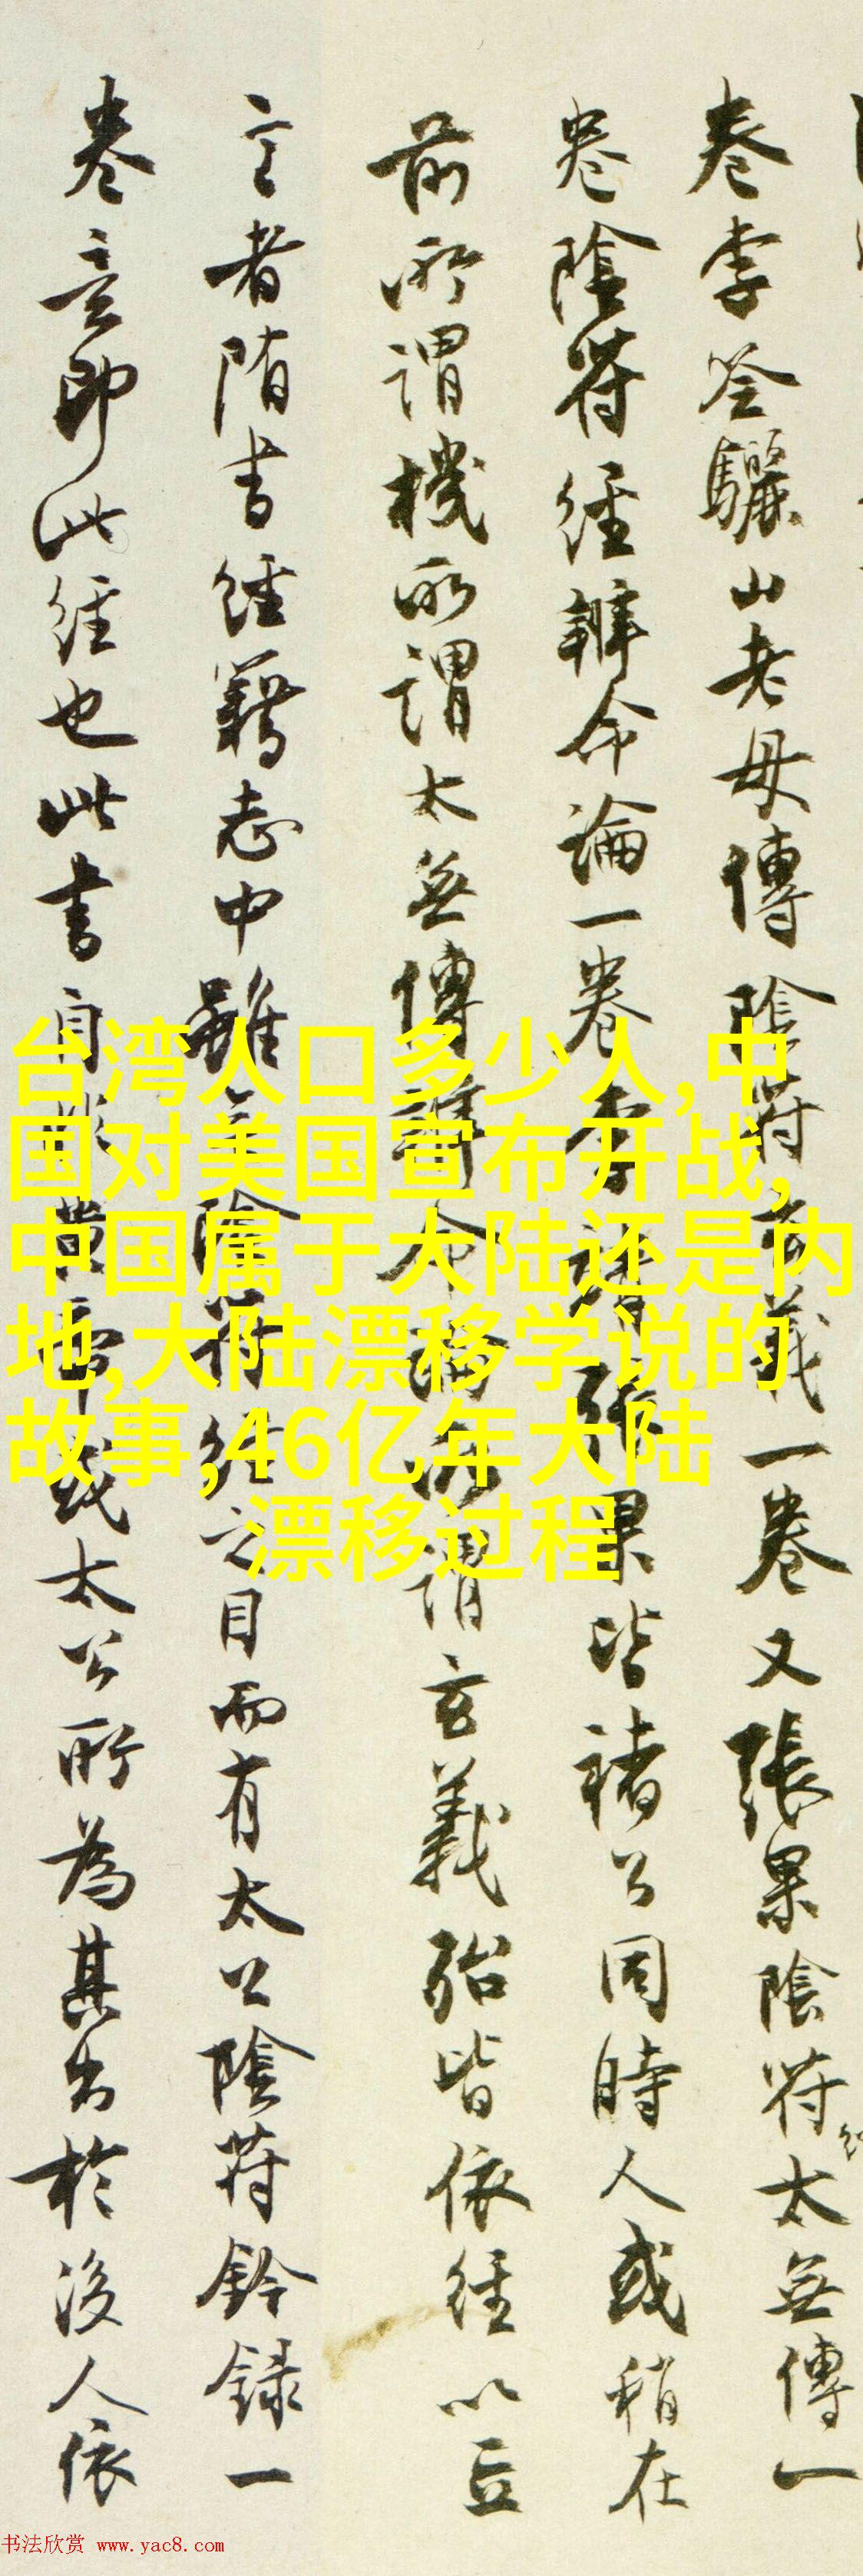 卷李筌驪山老母傳陰符玄義一卷又張果陰符太無傳一
卷陰符經辨命論一卷李張果皆褚公同時人或稍在
前所謂機所謂太無傳辨命論所謂玄義殆皆依經以立
言者隋書經籍志中雖無陰符經之目而有太公陰符鈐録一
卷意即此經也此書自非黄帝或太公所為其出於後人依
台湾人口多少人,中
国对美国宣布开战,
中国属于大陆还是内
地,大陆漂移学说的
故事,46亿年大陆
漂移过程
书法欣赏 www.yac8.com